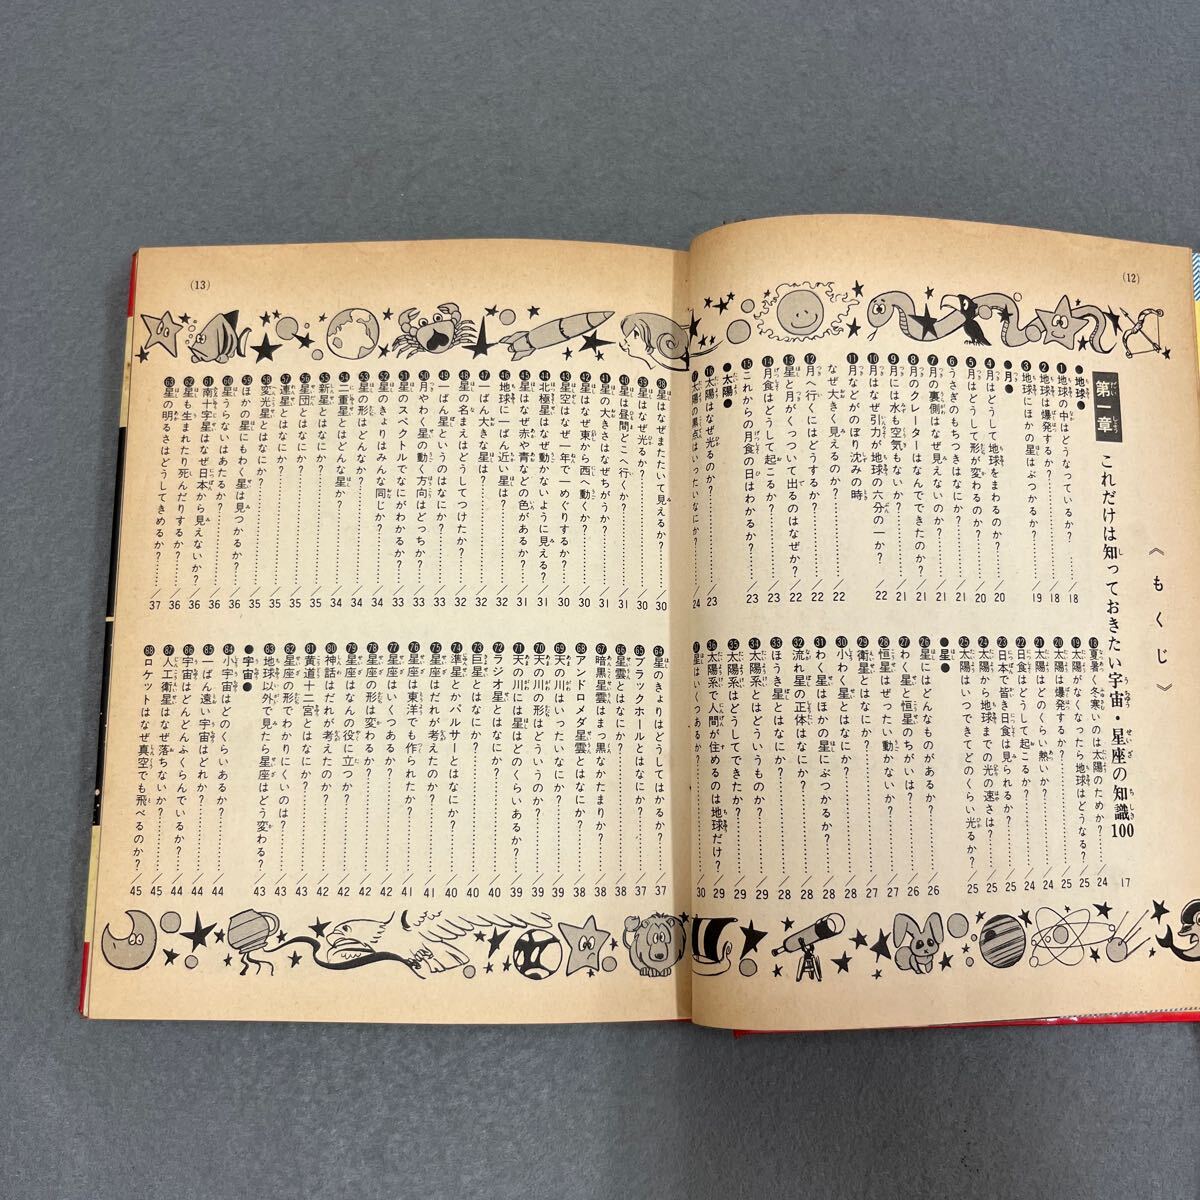 (12)
《もくじ》
第一章 これだけは知っておきたい宇宙・星座の知識100 17
●地球●
❶地球の中はどうなっているか?……／18
❷地球は爆発するか?……／18
❸地球にほかの星はぶつかるか?……／19
●月●
❹月はどうして地球をまわるのか?……／20
❺月はどうして形が変わるのか?……／20
❻うさぎのもちつきはなにか?……／21
❼月の裏側はなぜ見えないのか?……／21
❽月のクレーターはなんでできたのか?……／21
❾月には水も空気もないか?……／21
❿月はなぜ引力が地球の六分の一か?……／22
⓫月などがのぼり沈みの時
なぜ大きく見えるのか?……／22
⓬月へ行くにはどうするか?……／22
⓭星と月がくっついて出るのはなぜか?……／22
⓮月食はどうして起こるか?……／23
⓯これからの月食の日はわかるか?……／23
●太陽●
⓰太陽はなぜ光るのか?……／23
⓱太陽の黒点はいったいなにか?……／24
⓲夏暑く冬寒いのは太陽のためか?……／24
⓳太陽がなくなったら地球はどうなる?……／25
⓴太陽は爆発するか?……／25
㉑太陽はどのくらい熱いか?……／24
㉒日食はどうして起こるか?……／24
㉓日本で皆き日食は見られるか?……／25
㉔太陽から地球までの光の速さは?……／25
㉕太陽はいつできてどのくらい光るか?……／25
●星●
㉖星にはどんなものがあるか?……／26
㉗わく星と恒星のちがいは?……／26
㉘恒星はぜったい動かないか?……／27
㉙衛星とはなにか?……／27
㉚小わく星とはなにか?……／28
㉛わく星はほかの星にぶつかるか?……／28
㉜流れ星の正体はなにか?……／28
㉝ほうき星とはなにか?……／28
㉞太陽系とはどういうものか?……／29
㉟太陽系はどうしてできたか?……／29
㊱太陽系で人間が住めるのは地球だけ?……／29
㊲星はいくつあるか?……／30
(13)
㊳星はなぜまたたいて見えるか?……／30
㊴星はなぜ光るか?……／30
㊵星は昼間どこへ行くか?……／31
㊶星の大きさはなぜちがうか?……／31
㊷星はなぜ東から西へ動くか?……／30
㊸星空はなぜ一年で一めぐりするか?……／30
㊹北極星はなぜ動かないように見える?……／31
㊺星はなぜ赤や青などの色があるか?……／31
㊻地球に一ばん近い星は?……／32
㊼一ばん大きな星は?……／32
㊽星の名まえはどうしてつけたか?……／32
㊾一ばん星というのはなにか?……／33
㊿月やわく星の動く方向はどっちか?……／33
51星のスペクトルでなにがわかるか?……／33
52星のきょりはみんな同じか?……／34
53星の形はどんなか?……／34
54二重星とはどんな星か?……／34
55新星とはなにか?……／34
56星団とはなにか?……／35
57連星とはなにか?……／35
58変光星とはなにか?……／35
59ほかの星にもわく星は見つかるか?……／35
60星うらないはあたるか?……／36
61南十字星はなぜ日本から見えないか?……／36
62星も生まれたり死んだりするか?……／36
63星の明るさはどうしてきめるか?……／37
64星のきょりはどうしてはかるか?……／37
65ブラックホールとはなにか?……／37
66星雲とはなにか?……／38
67暗黒星雲はまっ黒なかたまりか?……／38
68アンドロメダ星雲とはなにか?……／38
69天の川はいったいなにか?……／39
70天の川の形はどういうのか?……／39
71天の川には星はどのくらいあるか?……／39
72ラジオ星とはなにか?……／40
73巨星とはなにか?……／40
74準星とかパルサーとはなにか?……／40
75星座はだれが考えたのか?……／41
76星座は東洋でも作られたか?……／41
77星座はいくつあるか?……／42
78星座の形は変わるか?……／42
79星座はなんの役に立つか?……／42
80神話はだれが考えたのか?……／42
81黄道十二宮とはなにか?……／43
82星座の形でわかりにくいのは?……／43
83地球以外で見たら星座はどう変わる?……／43
●宇宙●
84小宇宙はどのくらいあるか?……／44
85一ばん遠い宇宙はどれか?……／44
86宇宙はどんどんふくらんでいるか?……／44
87人工衛星はなぜ落ちないか?……／45
88ロケットはなぜ真空でも飛べるのか?……／45